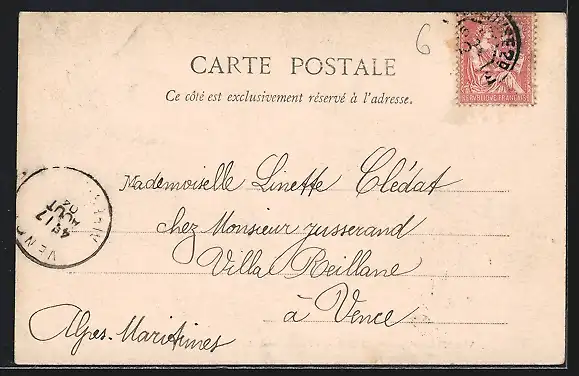 6
CARTE POSTALE
Ce côté est exclusivement réservé à l'adresse.
REPUBLIQUE FRANÇAISE
Mademoiselle Linette Clédat
chez Monsieur jusserand
Villa Reillane
à Vence
Alpes-Maritimes
VENCE
17
AOUT
04